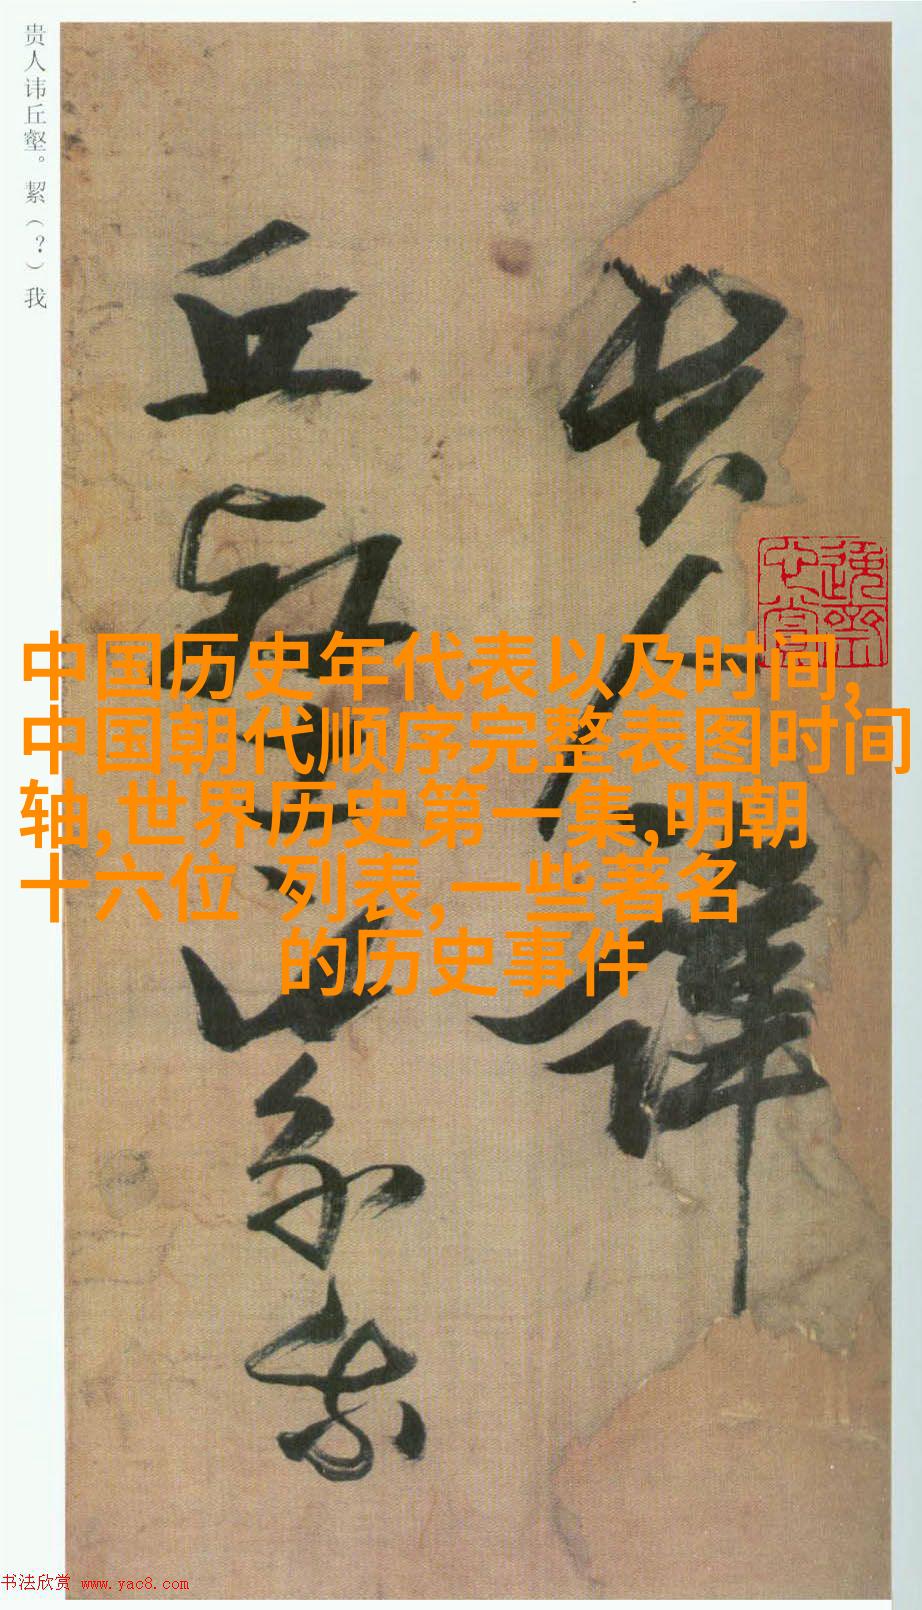 贵人讳丘壑。絜（？）我
贵人讳
丘壑
絜我
中国历史年代表以及时间,
中国朝代顺序完整表图时间
轴,世界历史第一集,明朝
十六位 列表,一些著名
的历史事件
书法欣赏 www.yac8.com